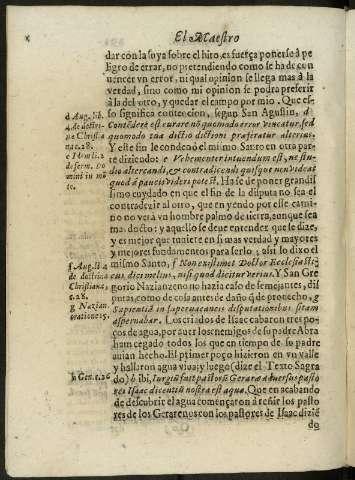 El Maestro
dar con la suya sobre el hito, es fuerça ponerse à pe
ligro de errar, no pretendiendo como se ha de con
uencer vn error, ni qual opinion se llega mas à la
verdad, sino como mi opinion se podra preferir
à la del otro, y quedar el campo por mio. Que es-
so significa contecion, segun San Agustin, d
Contẽdere est curare nõ quomodo error vincatur, sed
quomodo tua dictio dictioni præferatur alterius.
Y este fin le condenó el mismo Santo en otra par-
te diziendo: e Vehementer intuendum est, ne stu-
dio altercandi, & contradicendi quisque non videat
quod à paucis videri potest. Hase de poner grandis-
simo cuydado en que el fin de la disputa no sea el
contradezir al otro, que en yendo por esse cami-
no no verà vn hombre palmo de tierra, aunque sea
mas docto: y aquello se deue entender que se dize,
y es mejor que tuuiere en si mas verdad y mayores
y mejores fundamentos para serlo; assi lo dixo el
mismo Santo, f Non existimet Doctor Ecclesiasti-
cus, dici melius, nisi quod dicitur verius. Y San Gre
gorio Nazianzeno no hazia caso de semejantes, dis
putas, como de cosa antes de daño q̃ de prouecho, g
Sapientiæ in superuacaneis disputationibus sitam
aspernabar. Los criados de Isaac cauaron tres po-
ços de agua, por auer los enemigos de su padre Abra
ham cegado todos los que en tiempo de su padre
auian hecho. El primer poço hizieron en vn valle
y hallaron agua viua: y luego (dize el Texto Sagra
do) h ibi, Iurgiũ fuit pastorũ Geraræ aduersus pasto
res Isaac dicentiũ nostra est aqua. Que en acabando
de descubrir el agua començaron à reñir los pasto
res de los Gerarenos con los pastores de Isaac diziẽ
do
d Aug. lib.
4. de doctri
na Christia
na c. 28.
e Homil. 2
de serm. Do
mini in mõ
te.
f Aug. li. 4
de doctrina
Christiana,
c. 28.
g Nazian.
oratione 15.
h Gen. c. 26